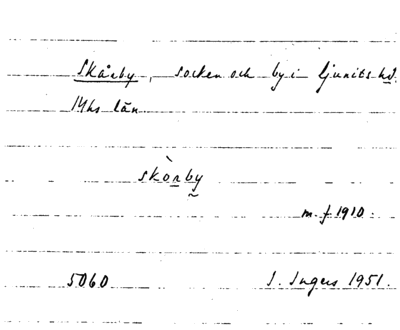 Skårby, socken och by i Ljunits hd.
Mhs län
skòrby
m. f 1910.
5060 I. Ingers 1951.